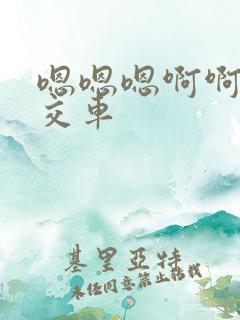 嗯嗯嗯啊啊
交车
基里亚特
未经同意禁止转载